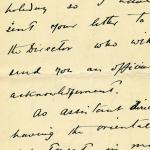 holiday so I
sent your letter to
the Director who wi
send you an officia
acknowledgement.
As assistant Dire
having the oriental